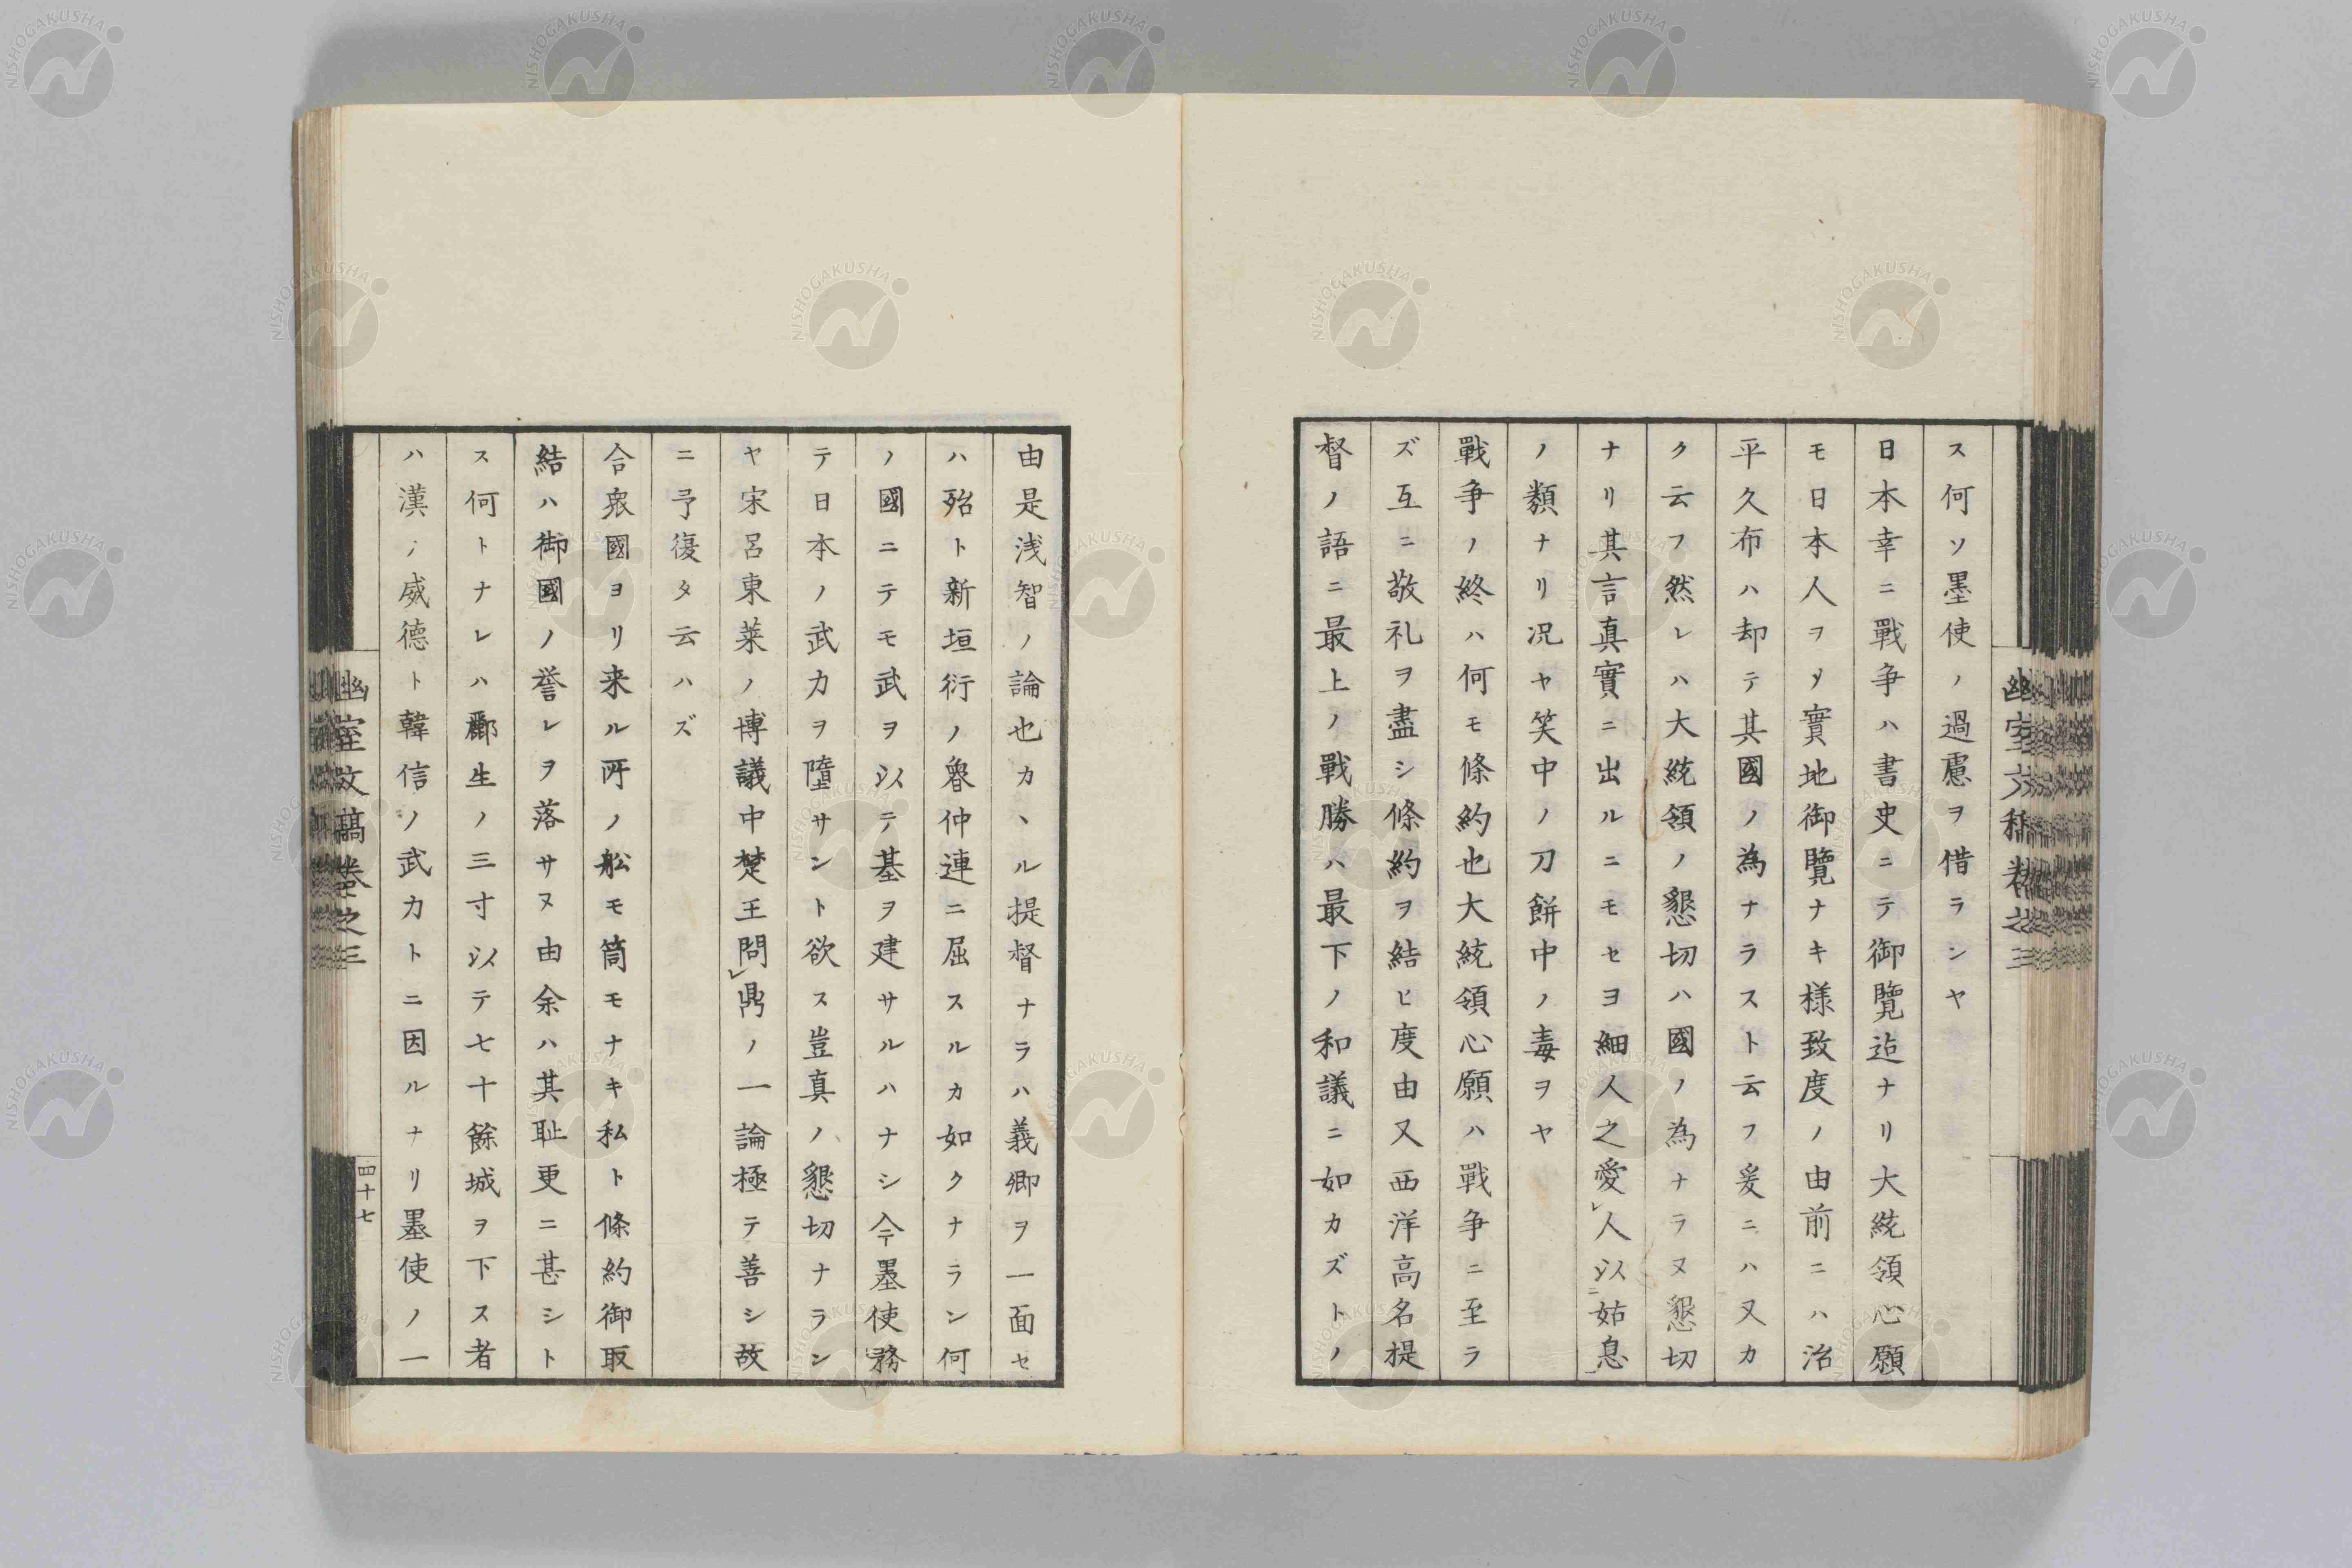 幽室文稿卷之三
ス何ソ墨使ノ過慮ヲ借ラシヤ
日本幸ニ戰争ハ書史ニテ御覽迠ナリ大統領心願
モ日本人ヲソ實地御覽ナキ様致度ノ由前ニハ治
平久布ハ却テ其國ノ為ナラスト云フ爰ニハ又カ
ク云フ然レハ大統領ノ懇切ハ國ノ為ナラヌ懇切
ナリ其言真實ニ出ルニモセヨ細人之愛人以姑息
ノ類ナリ况ヤ笑中ノ刀餅中ノ毒ヲヤ
戰争ノ終ハ何モ條約也大統領心願ハ戰争ニ至ラ
ズ互ニ敬礼ヲ盡シ條約ヲ結ヒ度由又西洋高名提
督ノ語ニ最上ノ戰勝ハ最下ノ和議ニ如カズトノ
由是浅智ノ論也カヽル提督ナラハ義卿ヲ一面セ
ハ殆ト新垣衍ノ魯仲連ニ屈スルカ如クナラン何
ノ國ニテモ武ヲ以テ基ヲ建サルハナシ今墨使務
テ日本ノ武力ヲ墮サント欲ス豈真ノ懇切ナラン
ヤ宋呂東莱ノ博議中楚王問鼎ノ一論極テ善シ故
ニ予復タ云ハズ
合衆國ヨリ来ル所ノ舩モ筒モナキ私ト條約御取
結ハ御國ノ誉レヲ落サヌ由余ハ其耻更ニ甚シト
ス何トナレハ酈生ノ三寸以テ七十餘城ヲ下ス者
ハ漢ノ威德ト韓信ノ武力トニ因ルナリ墨使ノ一
幽室文稿卷之三
四十七
NISHOGAKUSHA